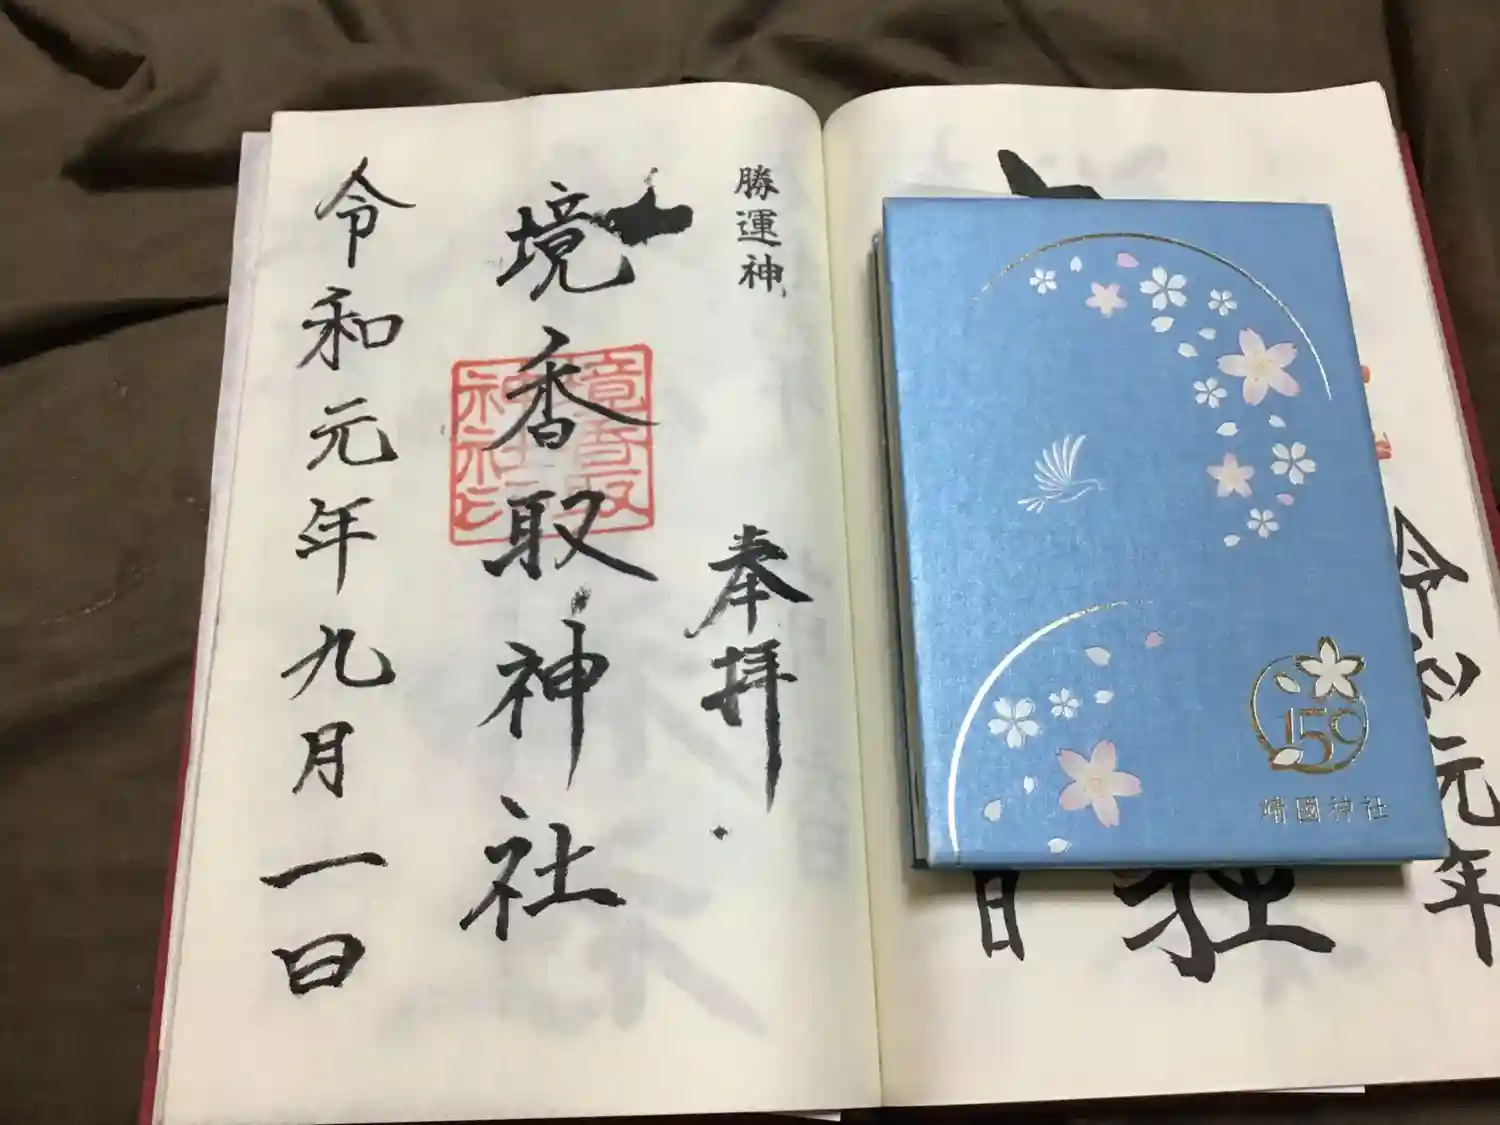 勝運神
奉拝
境香取神社
境香取神社印
令和元年九月一日
150
靖國神社
日
社
令和元年